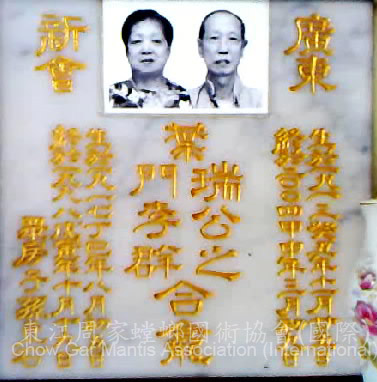 廣東
新會
生於一九一三癸丑年十月
終於二〇〇四甲申年三月
葉
瑞公之
門李群
合
生於一九一七丁巳年八月
終於一九八八戊辰年十月
房子孫
東江周家螳螂國術協會(國際)
Chow Gar Mantis Association (International)